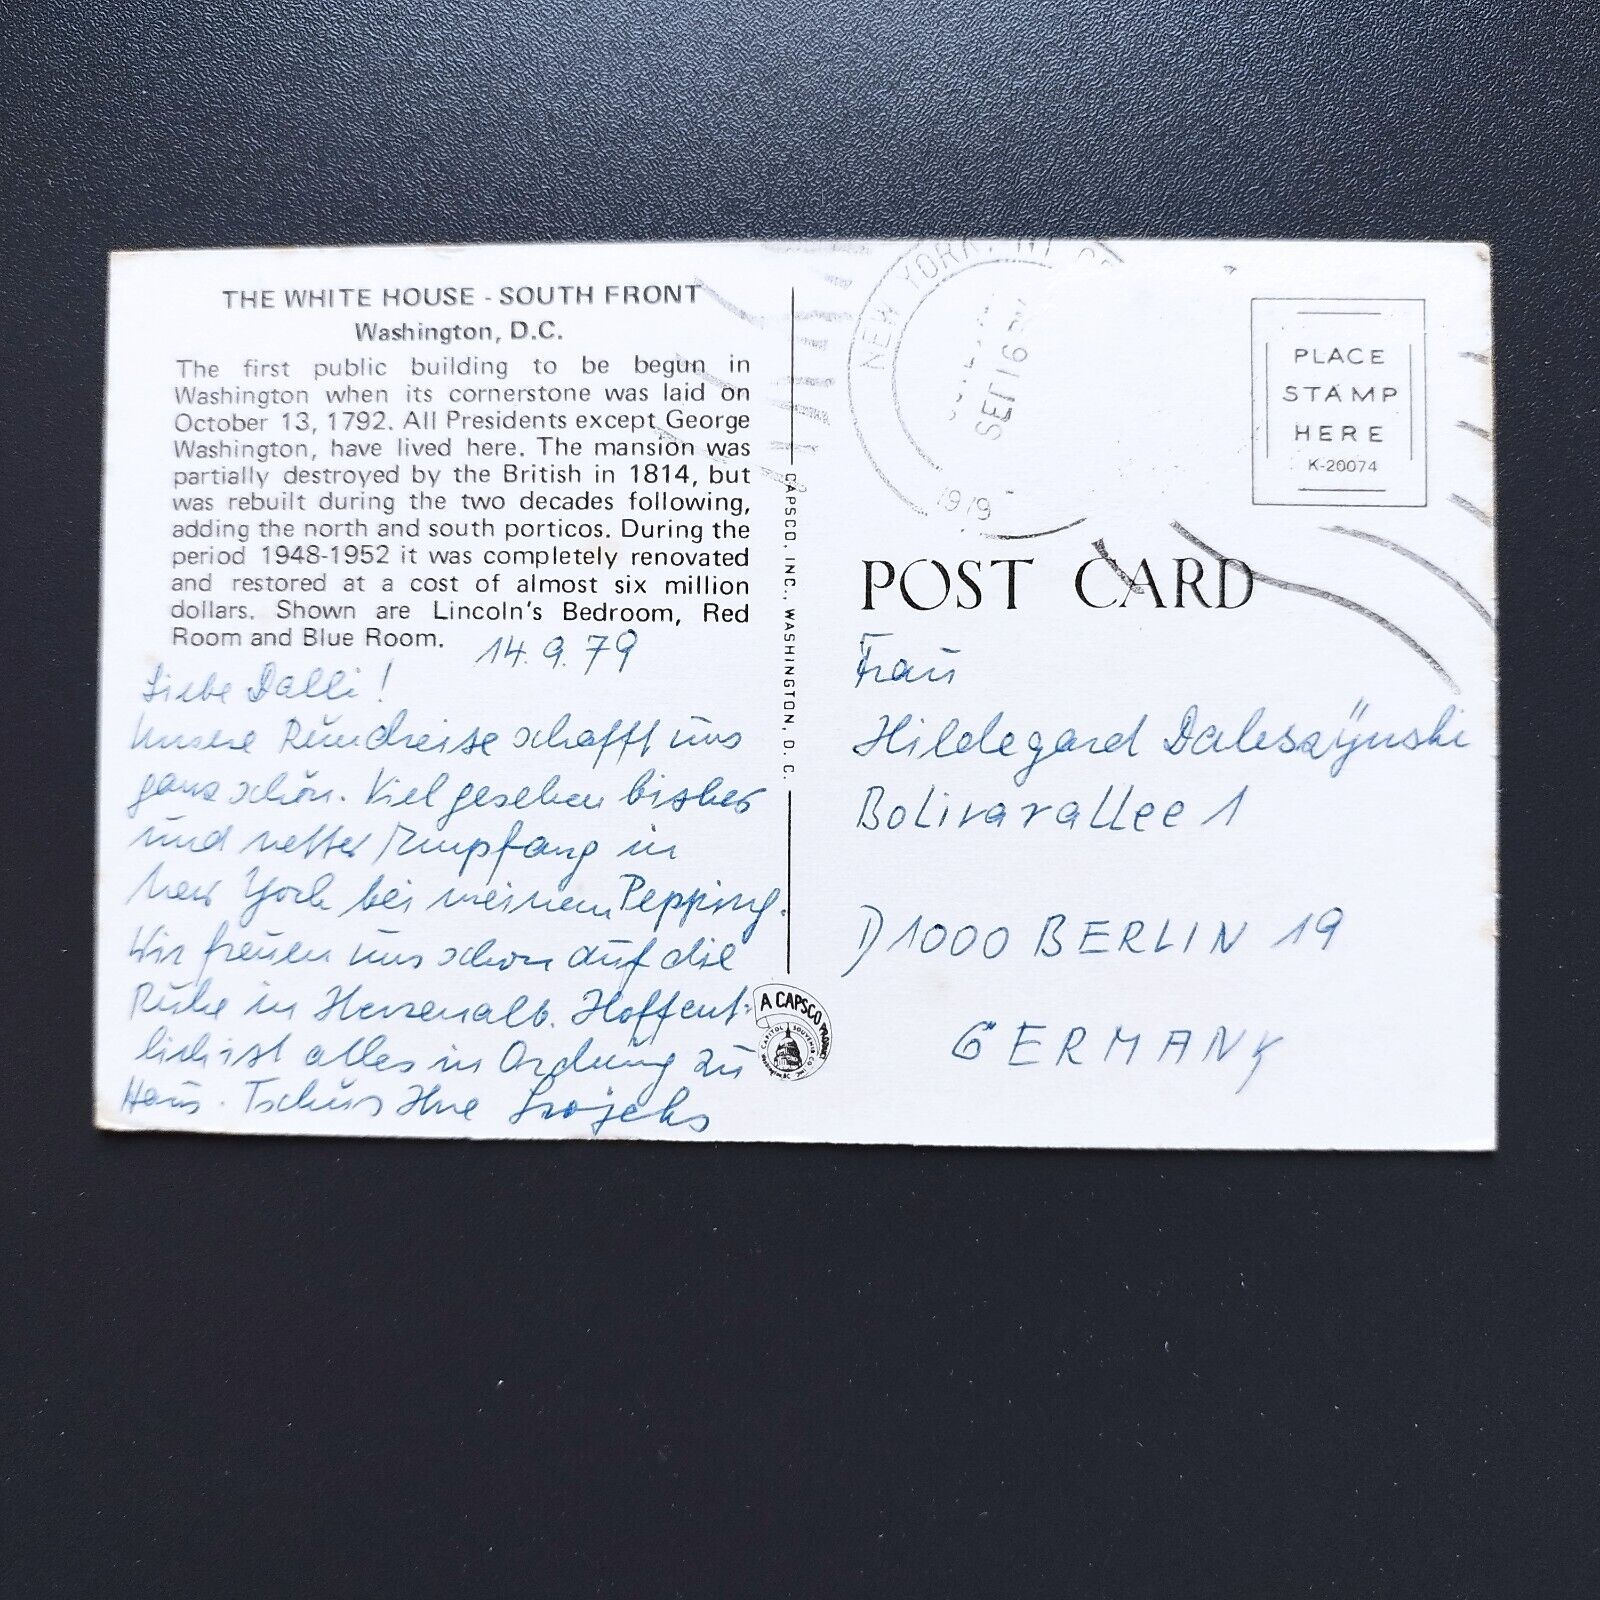 THE WHITE HOUSE - SOUTH FRONT
Washington, D.C.
The first public building to be begun in
Washington when its cornerstone was laid on
October 13, 1792. All Presidents except George
Washington, have lived here. The mansion was
partially destroyed by the British in 1814, but
was rebuilt during the two decades following,
adding the north and south porticos. During the
period 1948-1952 it was completely renovated
and restored at a cost of almost six million
dollars. Shown are Lincoln's Bedroom, Red
Room and Blue Room.
14.9.79
Liebe Dalli!
Unsere Rundreise schafft uns
ganz schön. Viel gesehen bisher
und netter Empfang in
New York bei meinem Pepping.
Wir freuen uns schon auf die
Ruhe in Herrenalb. Hoffent-
lich ist alles in Ordnung zu
Haus. Tschüs Ihre
CAPSCO, INC., WASHINGTON, D. C.
A CAPSCO PRODUCT
CAPITOL SOUVENIR CO. INC.
NEW YORK, N
SEP 16
1979
PLACE
STAMP
HERE
K-20074
POST CARD
Frau
Hildegard Daleszÿnski
Bolivarallee 1
D 1000 BERLIN 19
GERMANY